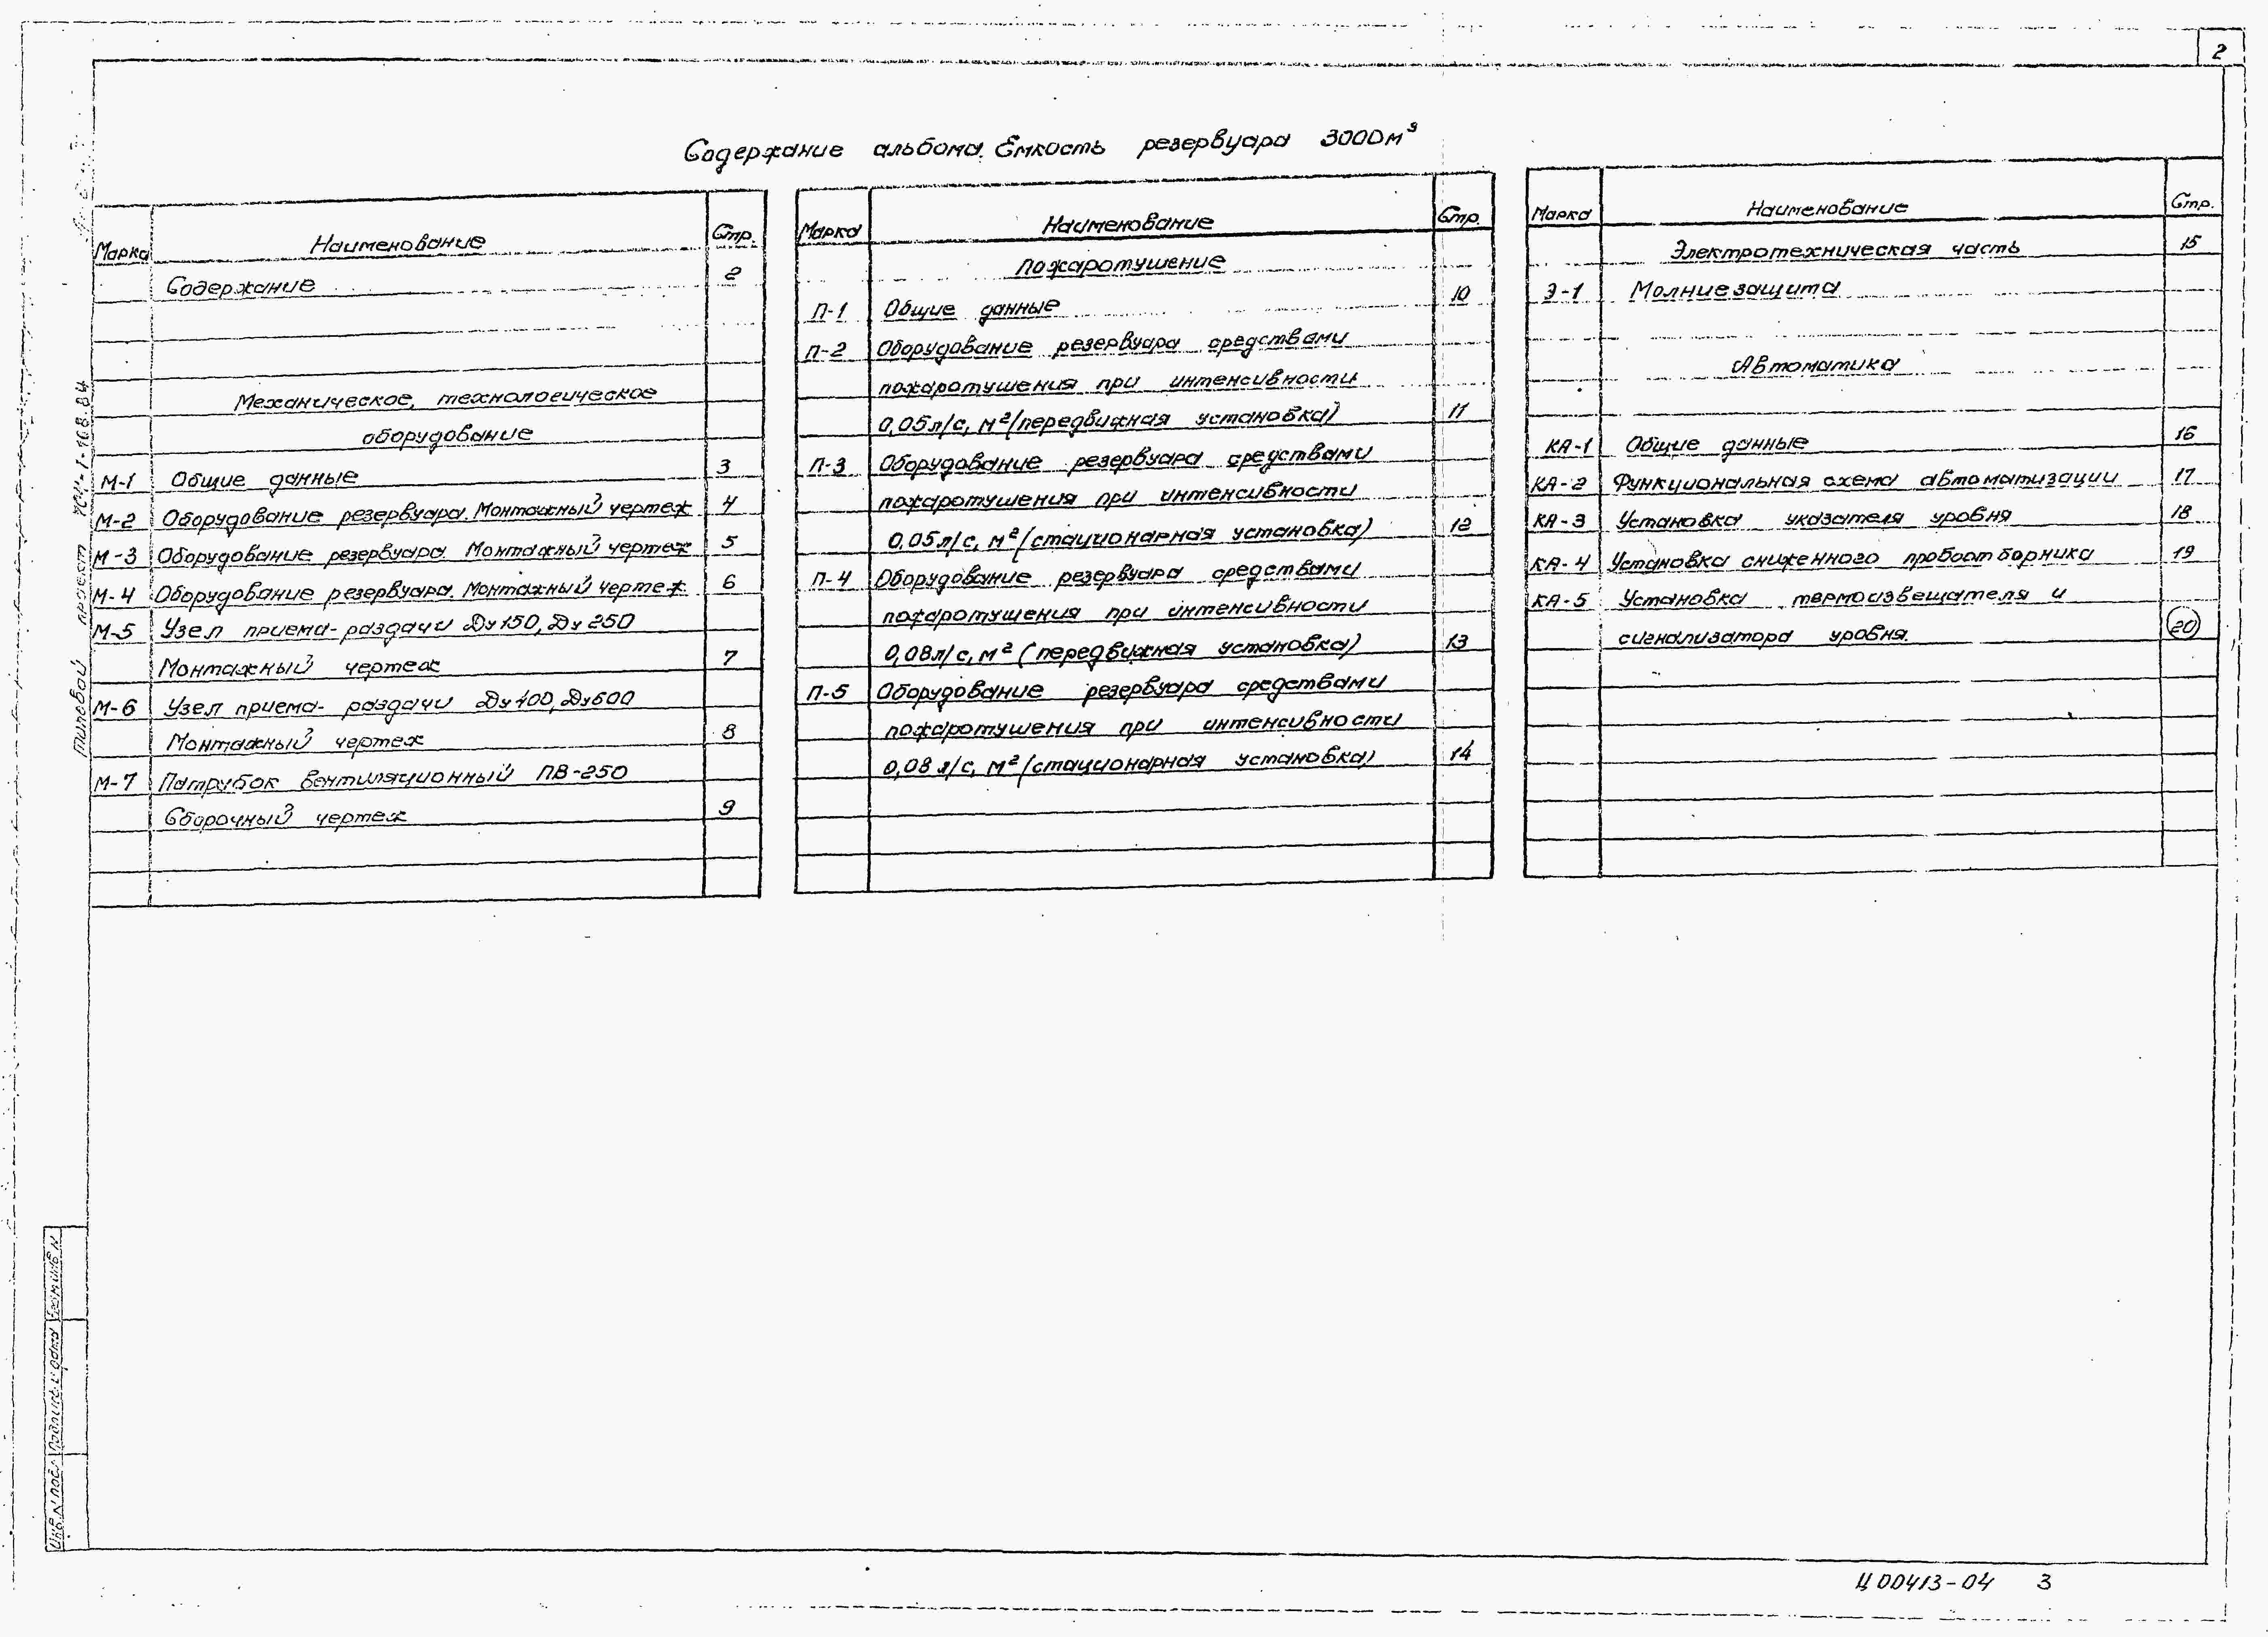 2
Содержание альбома. Емкость резервуара 3000м³
Марка Наименование Стр.
Содержание 2
Механическое, технологическое
оборудование
М-1 Общие данные 3
М-2 Оборудование резервуара. Монтажный чертеж 4
М-3 Оборудование резервуара. Монтажный чертеж 5
М-4 Оборудование резервуара. Монтажный чертеж 6
М-5 Узел приема-раздачи Ду 150, Ду 250
Монтажный чертеж 7
М-6 Узел приема- раздачи Ду 400, Ду600
Монтажный чертеж 8
М-7 Патрубок вентиляционный ПВ-250
Сборочный чертеж 9
Марка Наименование Стр.
Пожаротушение
П-1 Общие данные 10
П-2 Оборудование резервуара средствами
пожаротушения при интенсивности
0,05л/с, м² (передвижная установка) 11
П-3 Оборудование резервуара средствами
пожаротушения при интенсивности
0,05л/с, м² (стационарная установка) 12
П-4 Оборудование резервуара средствами
пожаротушения при интенсивности
0,08л/с, м² (передвижная установка) 13
П-5 Оборудование резервуара средствами
пожаротушения при интенсивности
0,08 л/с, м² (стационарная установка) 14
Марка Наименование Стр.
Электротехническая часть 15
Э-1 Молниезащита
Автоматика
КА-1 Общие данные 16
КА-2 Функциональная схема автоматизации 17
КА-3 Установка указателя уровня 18
КА-4 Установка сниженного пробоотборника 19
КА-5 Установка термоизвещателя и
сигнализатора уровня. 20
Типовой проект 704-1-168.84
Инв. N подл. Подпись и дата Взам инв N
Ц00413-04 3